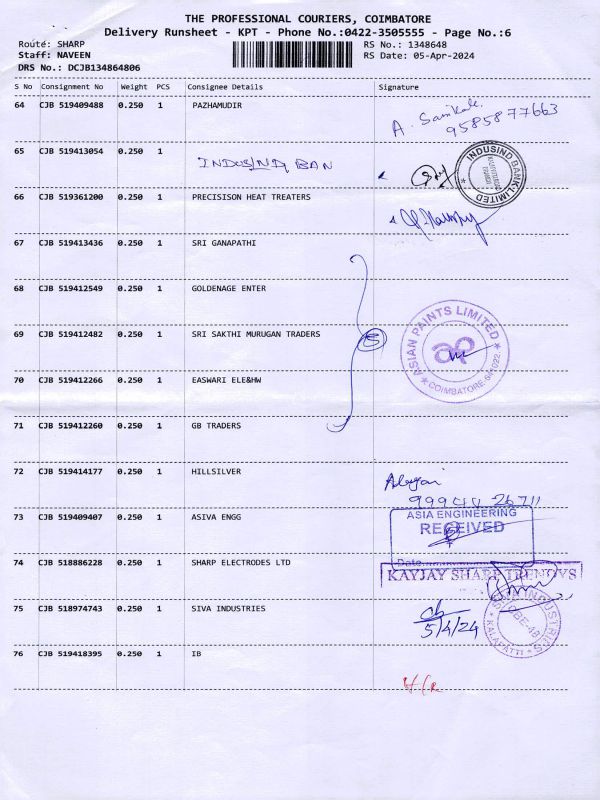 THE PROFESSIONAL COURIERS, COIMBATORE
Delivery Runsheet - KPT - Phone No.:0422-3505555 - Page No.:6
Route: SHARP RS No.: 1348648
Staff: NAVEEN RS Date: 05-Apr-2024
DRS No.: DCJB134864806
S No Consignment No Weight PCS Consignee Details Signature
64 CJB 519409488 0.250 1 PAZHAMUDIR
9585877663
65 CJB 519413054 0.250 1 INDUSIND BAN
INDUSIND BANK LIMITED
66 CJB 519361200 0.250 1 PRECISISON HEAT TREATERS
67 CJB 519413436 0.250 1 SRI GANAPATHI
68 CJB 519412549 0.250 1 GOLDENAGE ENTER
69 CJB 519412482 0.250 1 SRI SAKTHI MURUGAN TRADERS
5
ASIAN PAINTS LIMITED
ap
COIMBATORE-641022
70 CJB 519412266 0.250 1 EASWARI ELE&HW
71 CJB 519412260 0.250 1 GB TRADERS
72 CJB 519414177 0.250 1 HILLSILVER
73 CJB 519409407 0.250 1 ASIVA ENGG
ASIA ENGINEERING
RECEIVED
Date
74 CJB 518886228 0.250 1 SHARP ELECTRODES LTD
KAYJAY SHARP TRENDYS
75 CJB 518974743 0.250 1 SIVA INDUSTRIES
5/4/24
INDUSTRIES
KALAPATTI
76 CJB 519418395 0.250 1 IB